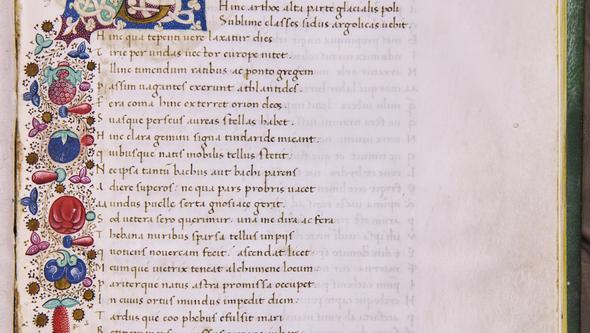 Hinc arthos alta parte glacialis poli
Sublime classes sidus argolicas uehit.
Hinc qua tepenti uere laxatur dies
Tirie per undas uector europe nitet.
Illinc timendum ratibus ac ponto gregem
Passim uagantes exerunt athlantides.
Fera coma hinc exterret orion deos.
Suasque perseus aureas stellas habet.
Hinc clara gemini signa tindaride micant.
quibusque natis mobilis tellus stetit.
Nec ipsa tantu bachus aut bachi parens
adiere superos: ne qua pars probris uacet
Mundus puelle serta gnosiace gerit.
Sed uetera sero querimur. una me dira ac fera
Thebana nuribus sparsa tellus impiis
quotiens nouercam fecit. ascendat licet
Meumque uictrix teneat alchimene locum.
pariterque natus astra promissa occupet
In cuius ortus mundus impedit diem.
Tardus que eoo phebus efulsit mari